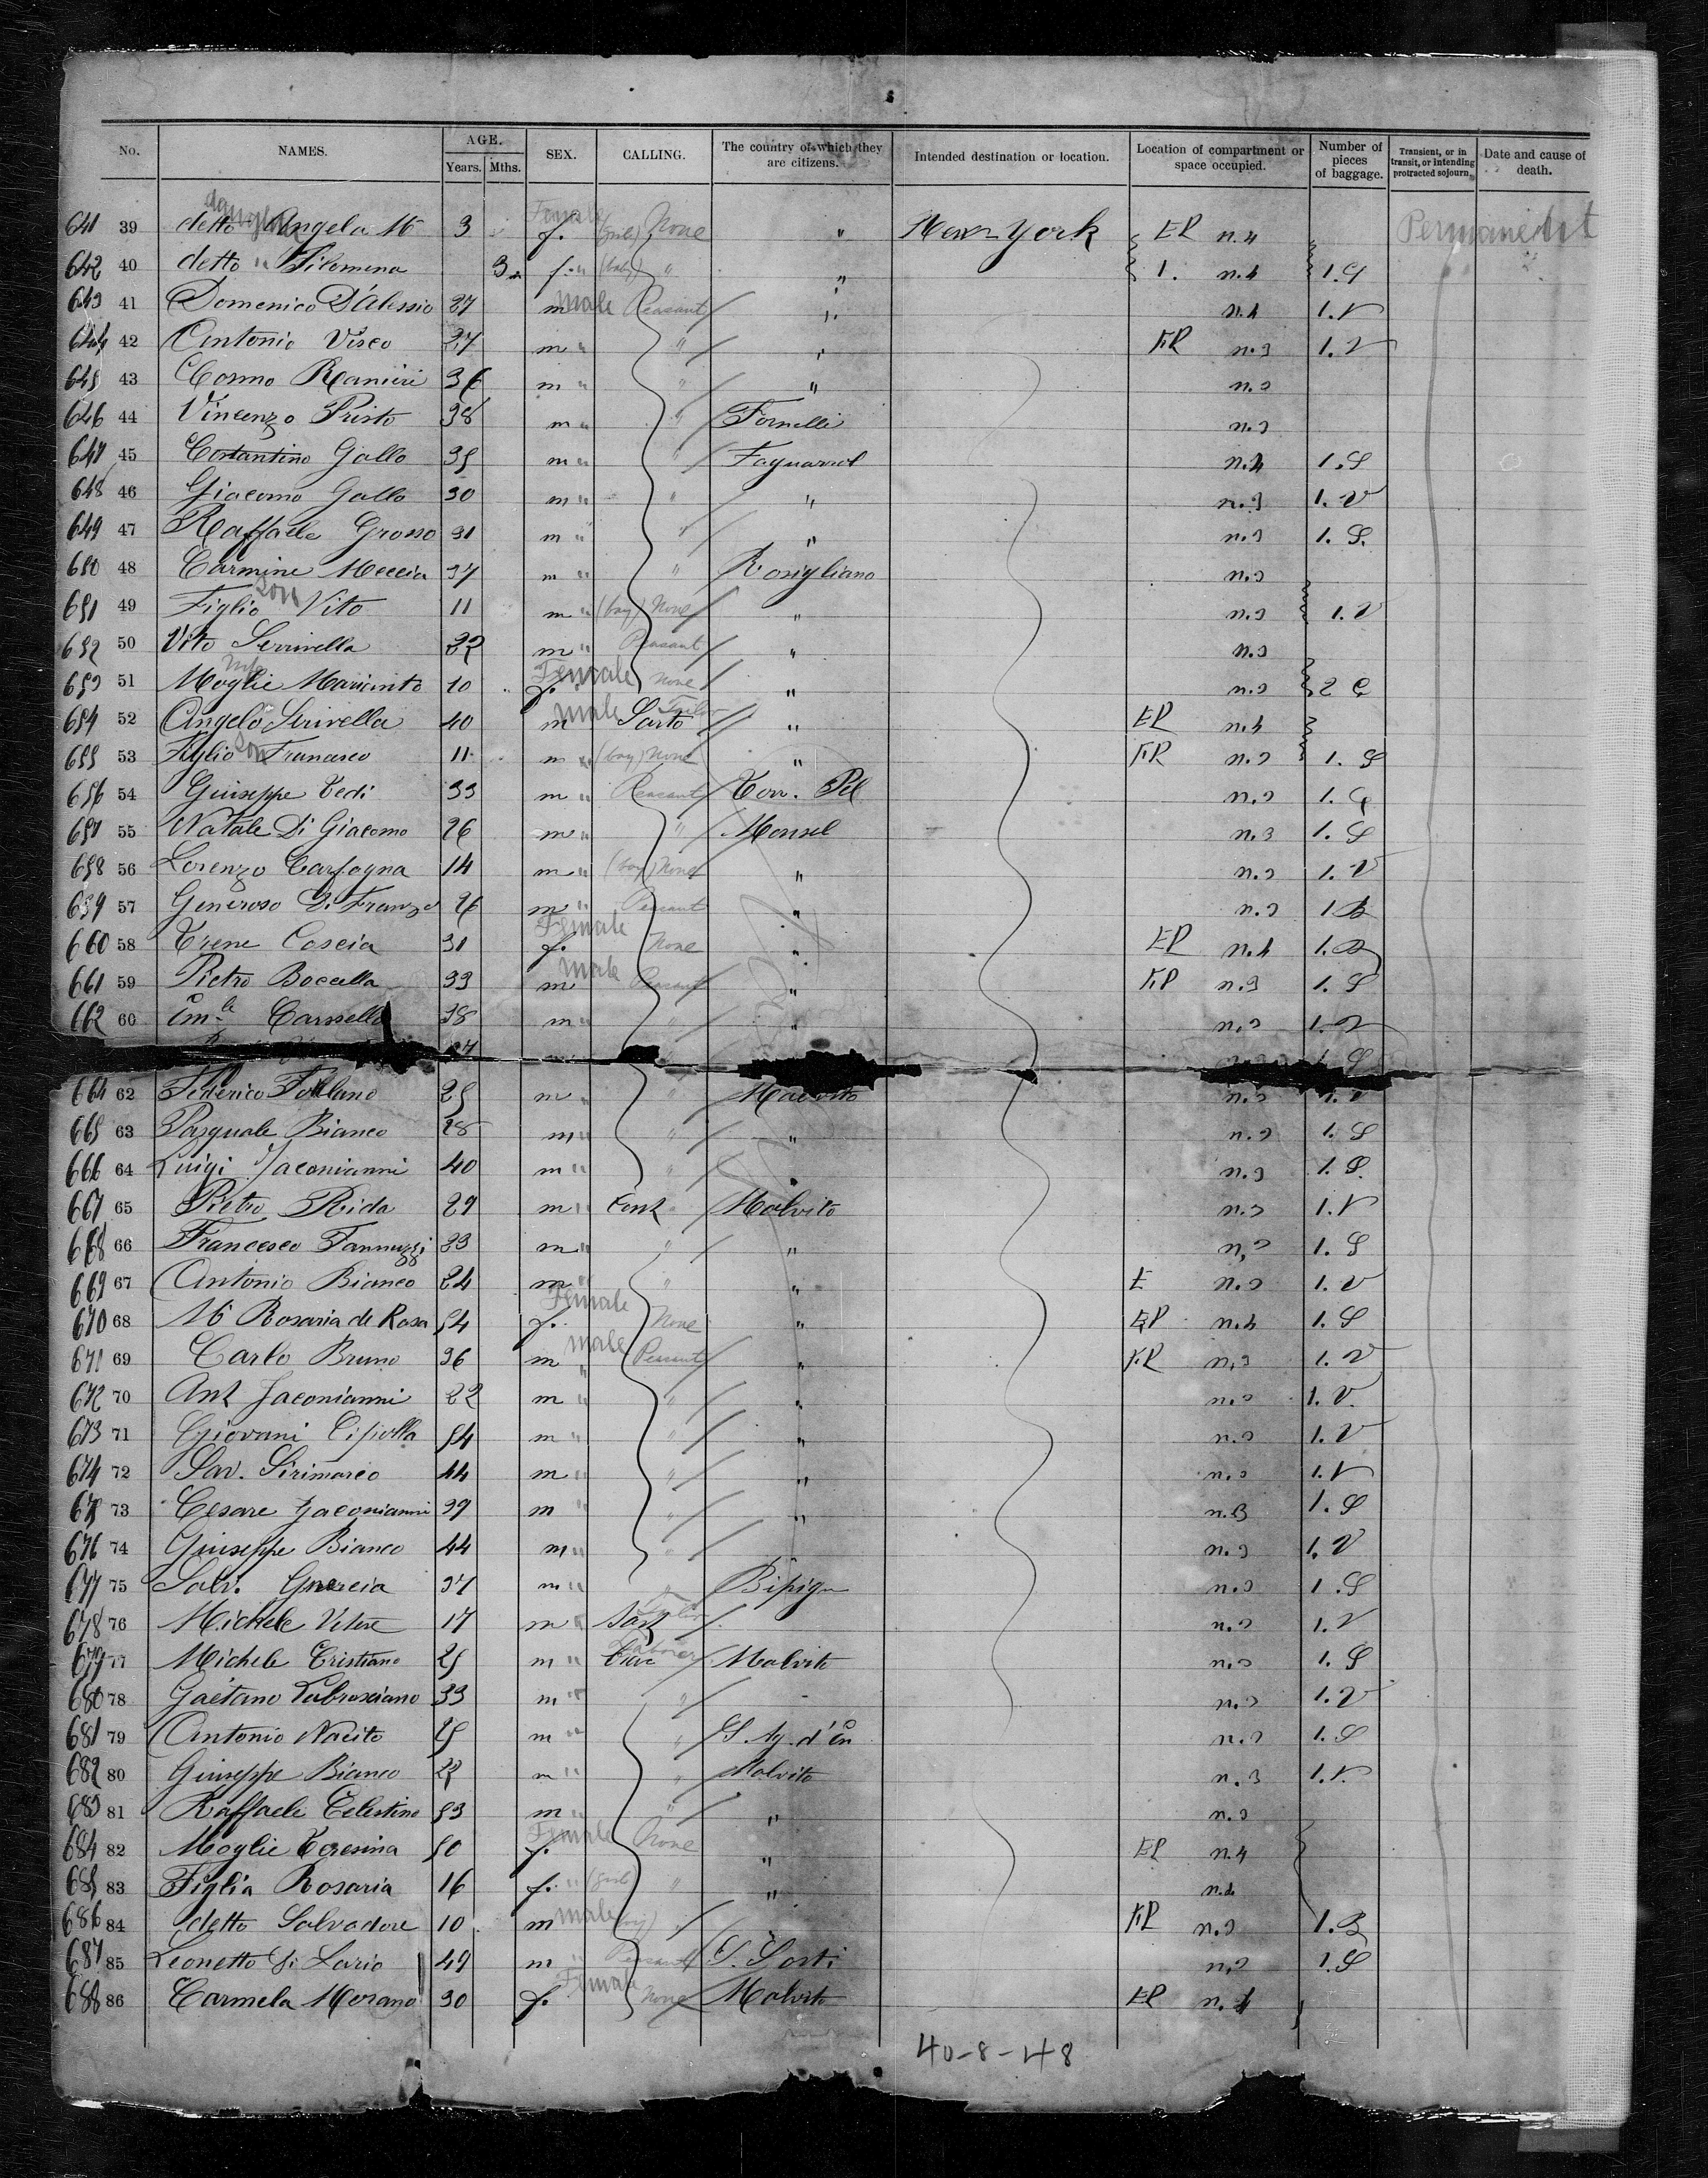 No. NAMES. AGE. Years. Mths. SEX. CALLING. The country of which they are citizens. Intended destination or location. Location of compartment or space occupied. Number of pieces of baggage. Transient, or in transit, or intending protracted sojourn. Date and cause of death.
641 39 detto daughter Angela Ma 3 Female f. (girl) None " New-York EP n.4 Permanent
642 40 detto " Filomena 3 m f. " (baby) " " 1. n.4 1.
643 41 Domenico D'Alessio 27 m male Peasant " n.4 1.V
644 42 Antonio Visco 27 m " " " FR n.3 1.V
645 43 Cosmo Ranieri 36 m " " " n.3
646 44 Vincenzo Pristo 38 m " " Fornelli n.3
647 45 Costantino Gallo 35 m " " n.4 1.S
648 46 Giacomo Gallo 30 m " " " n.3 1.V
649 47 Raffaele Grosso 31 m " " " n.3 1.S.
650 48 Carmine Meccia 37 m " " Rosigliano n.3
651 49 Figlio son Vito 11 m " (boy) None " n.3 1.V
652 50 Vito Serrivella 32 m " Peasant " n.3
653 51 Moglie wife 10 Female f. None " n.3 2
654 52 Angelo Serivella 40 male m Sarto Tailor " EP n.4
655 53 Figlio son Francesco 11 m " (boy) None " FR n.3 1.S
656 54 Giuseppe Tedi 33 m " Peasant Torr. Pel n.3 1.
657 55 Natale Di Giacomo 26 m " " Monsel n.3 1.S
658 56 Lorenzo Carfagna 14 m " (boy) None " n.3 1.V
659 57 Generoso Di Franzo 26 m " Peasant " n.3 1.B
660 58 Irene Coscia 31 Female f. None " EP n.4 1.B
661 59 Pietro Bocella 33 male m Peasant " FP n.3 1.S
662 60 Em.le Carnsella 38 m " " " n.3 1.V
1.S
664 62 Federico Follano 25 m " " Malvito n.3 1.V
665 63 Pasquale Bianco 28 m " " " n.3 1.S
666 64 Luigi Jaconianni 40 m " " n.3 1.S.
667 65 Pietro Rida 29 m " Cont " Malvito n.3 1.V
668 66 Francesco Iannuzzi 33 m " " " n.3 1.S
669 67 Antonio Bianco 24 m " " " E n.3 1.V
670 68 Ma Rosaria de Rosa 54 Female f. None " EP n.4 1.S
671 69 Carlo Bruno 36 male m " Peasant " FR n.3 1.V
672 70 Ant Jaconianni 22 m " " " n.3 1.V.
673 71 Giovani Cipolla 54 m " " " n.3 1.V
674 72 Sav. Sirimarco 44 m " " " n.3 1.V
675 73 Cesare Jaconianni 39 m " " " n.3 1.S
676 74 Giuseppe Bianco 44 m " " n.3 1.V
677 75 Salv. Guercia 37 m " " Bisign n.3 1.S
678 76 Michele Vitere 17 m " Sart Tailor n.3 1.V
679 77 Michele Cristiano 25 m " Laborer Malvito n.3 1.S
680 78 Gaetano 33 m " " n.3 1.V
681 79 Antonio Nacito 25 m " " S. Ag. d'En n.3 1.S
682 80 Giuseppe Bianco 28 m " " Malvito n.3 1.V.
683 81 Raffaele Celestino 53 m " " " n.3
684 82 Moglie Teresina 50 Female f. None " EP n.4
685 83 Figlia Rosaria 16 f. " (girl) " " n.4
686 84 detto Salvadore 10 male m (boy) " FP n.3 1.B
687 85 Leonetto Di Lario 49 m " Peasant S. Sosti n.3 1.S
688 86 Carmela Morano 30 Female f. None Malvito EP n.4
40-8-48